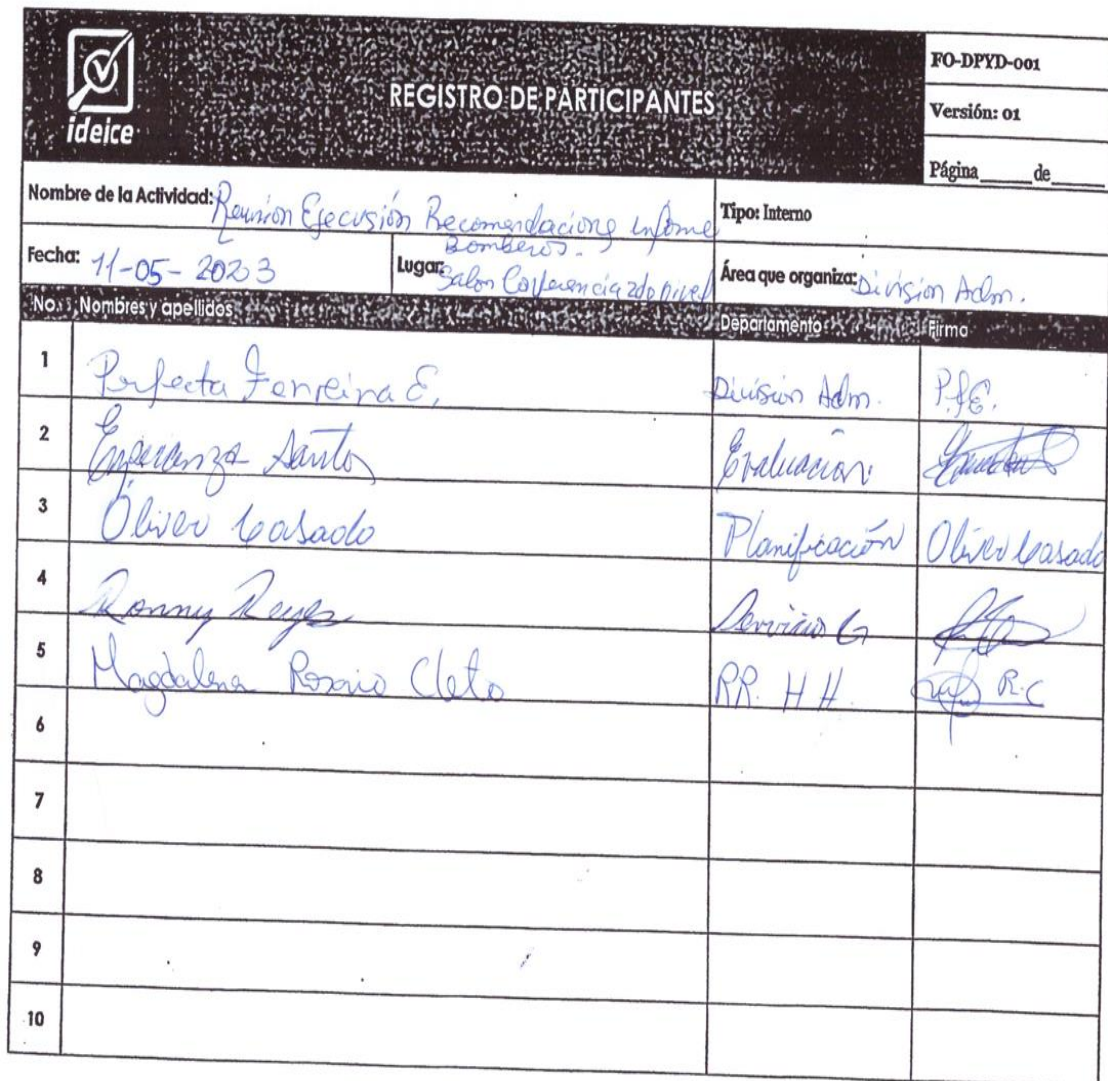 ideice
REGISTRO DE PARTICIPANTES
FO-DPYD-001
Versión: 01
Página______de______
Nombre de la Actividad: Reunión Ejecusión Recomendacione informe
Bomberos.-
Tipo: Interno
Fecha: 11-05-2023
Lugar: Salon Conferencia 2do nivel
Área que organiza: División Adm.
No. Nombres y apellidos Departamento Firma
1 Perfecta Ferreira E. División Adm. P.f.E.
2 Esperanza Santos Evaluación
3 Oliver Casado Planificación Oliver Casado
4 Ronny Reyes Servicio G
5 Magdalena Rosario Cleto RR. HH. R.C
6
7
8
9
10